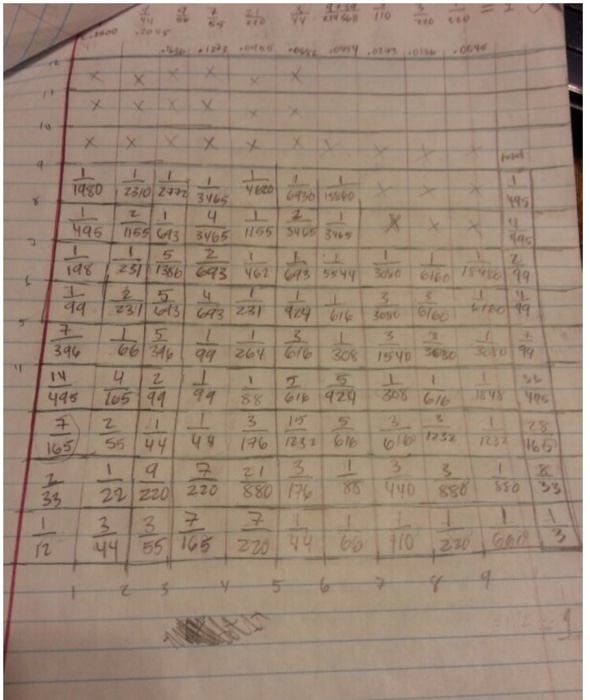 .2500 .2045 .1636 .1273 .0955 .0682 .0454 .0273 .0136 .0045
12 x x x x x x
11 x x x x x x
10 x x x x x x x x x x total
9 1/1980 1/2310 1/2772 1/3465 1/4620 1/6930 1/13860 x x x 1/495
8 1/495 2/1155 1/693 4/3465 1/1155 2/3465 1/3465 x x x 4/495
7 1/198 1/231 5/1386 2/693 1/462 1/693 1/5544 1/3080 1/6160 1/18480 2/99
6 1/99 2/231 5/693 4/693 1/231 1/924 1/616 3/3080 3/6160 1/6160 4/99
5 7/396 1/66 5/396 1/99 1/264 3/616 1/308 3/1540 3/3080 1/3080 /99
4 14/495 4/165 2/99 1/99 1/88 5/616 5/924 1/308 1/616 1/1848 /495
7/165 2/55 1/44 1/44 3/176 15/1232 5/616 3/616 3/1232 1/1232 28/165
2/33 1/22 9/220 7/220 21/880 3/176 1/88 3/440 3/880 1/880 8/33
1/12 3/44 3/55 7/165 7/220 1/44 1/66 1/110 1/220 1/660 1/3
1 2 3 4 5 6 7 8 9
= 1